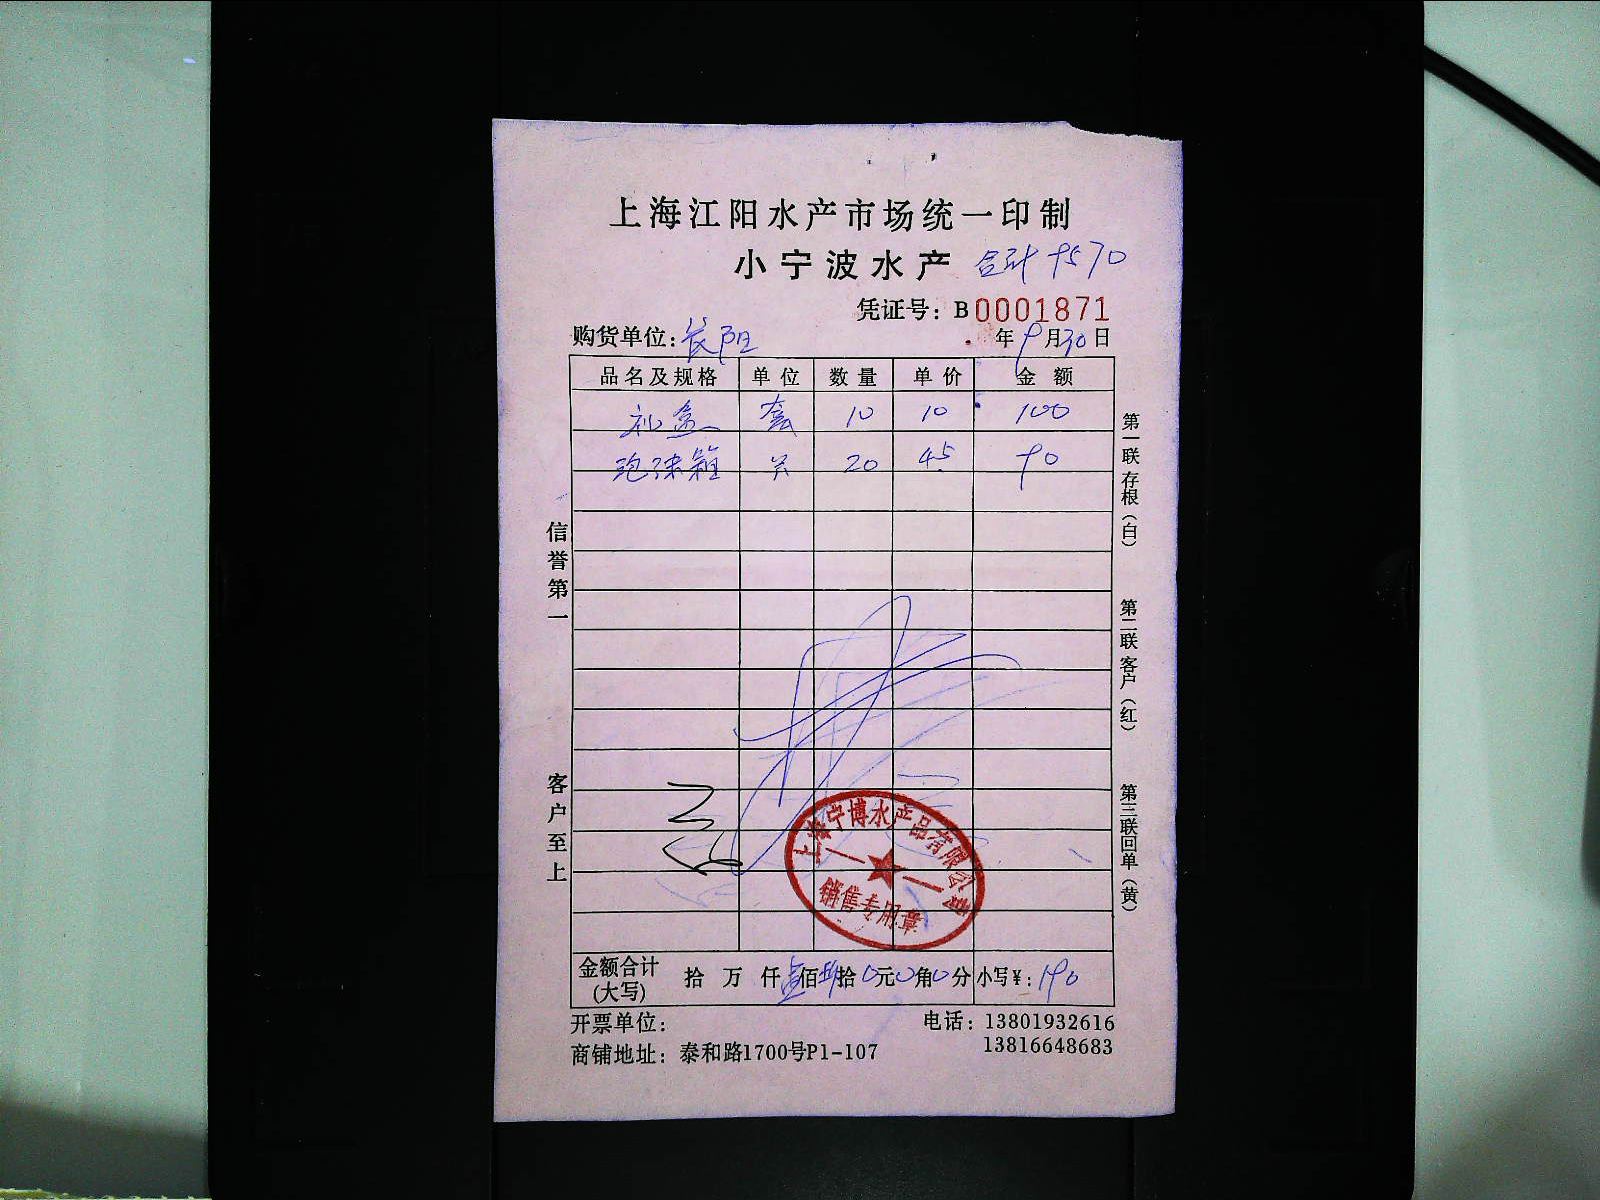 上海江阳水产市场统一印制
小宁波水产 合计 9570
凭证号：B0001871
购货单位：长阳 年9月30日
品名及规格 单位 数量 单价 金额
礼盒 套 10 10 100
泡沫箱 只 20 4.5 90
信誉第一
客户至上
第一联存根（白）
第二联客户（红）
第三联回单（黄）
上海宁博水产品有限公司
销售专用章
金额合计（大写） 拾 万 仟壹佰玖拾0元0角0分 小写¥：190
开票单位： 电话：13801932616
商铺地址：泰和路1700号P1-107 13816648683